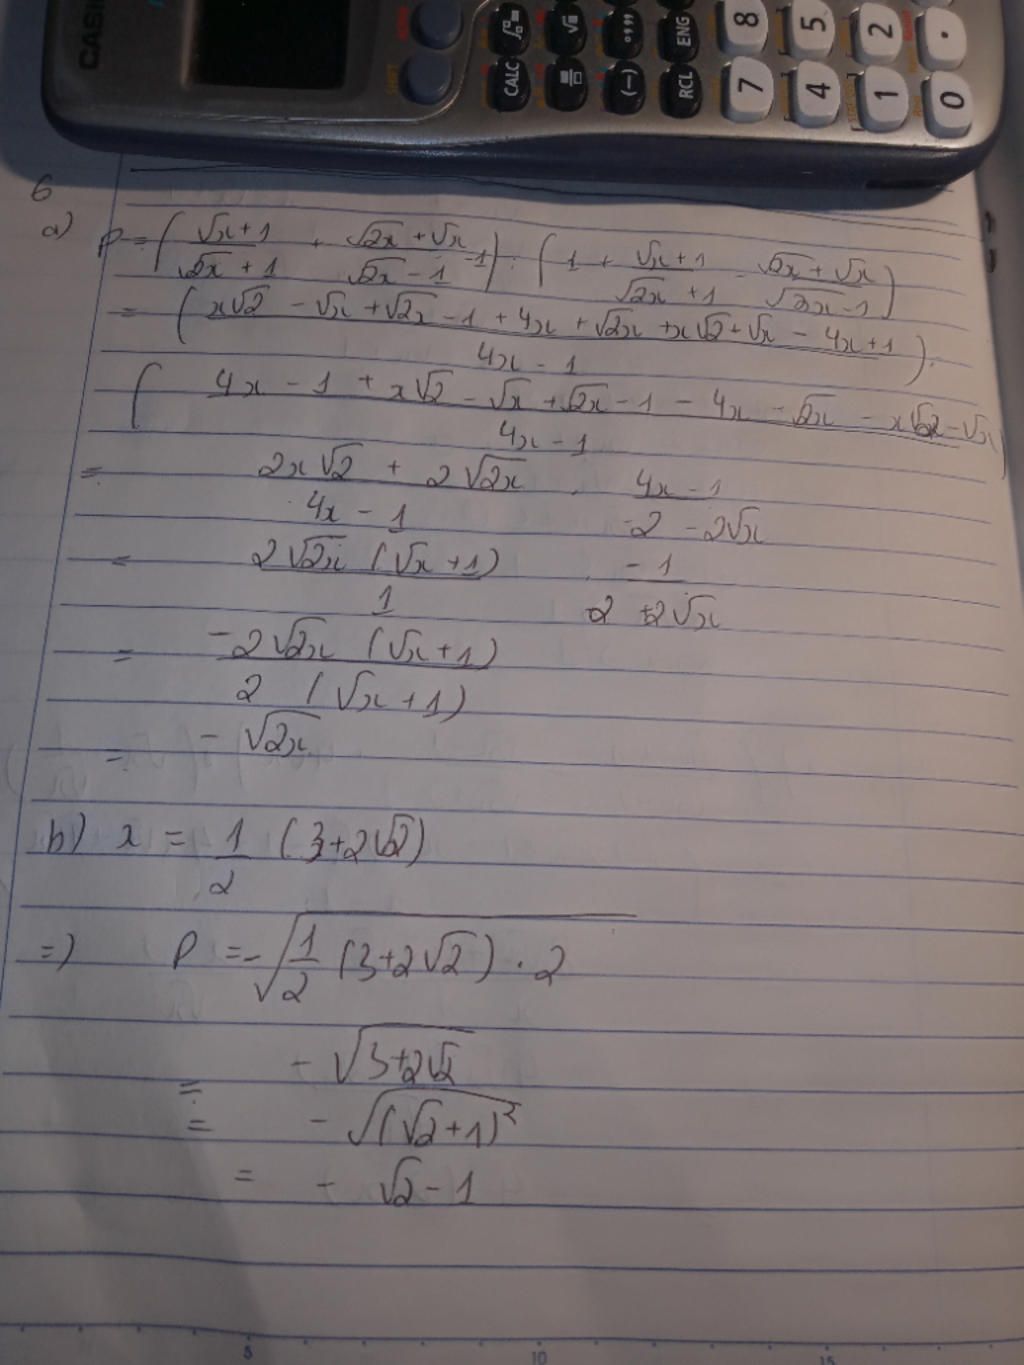 CASIO
SHIFT
CALC
(-)
RCL
ENG
7
8
4
5
1
2
0
.
6
a) P = ( (√x + 1)/(√2x + 1) + (√2x + √x)/(√2x - 1) - 1 ) : ( 1 + (√x + 1)/(√2x + 1) - (√2x + √x)/(√2x - 1) )
= ( (x√2 - √x + √2x - 1 + 4x + √2x + x√2 + √x - 4x + 1)/(4x - 1) ) :
( (4x - 1 + x√2 - √x + √2x - 1 - 4x - √2x - x√2 - √x)/(4x - 1) )
= (2x√2 + 2√2x)/(4x - 1) . (4x - 1)/(-2 - 2√x)
= (2√2x (√x + 1))/1 . (-1)/(2 + 2√x)
= (-2√2x (√x + 1))/(2 (√x + 1))
= -√2x
b) x = 1/2 (3 + 2√2)
=) P = -√(1/2 (3 + 2√2) . 2)
= -√(3 + 2√2)
= -√((√2 + 1)²)
= - √2 - 1
5 10 15